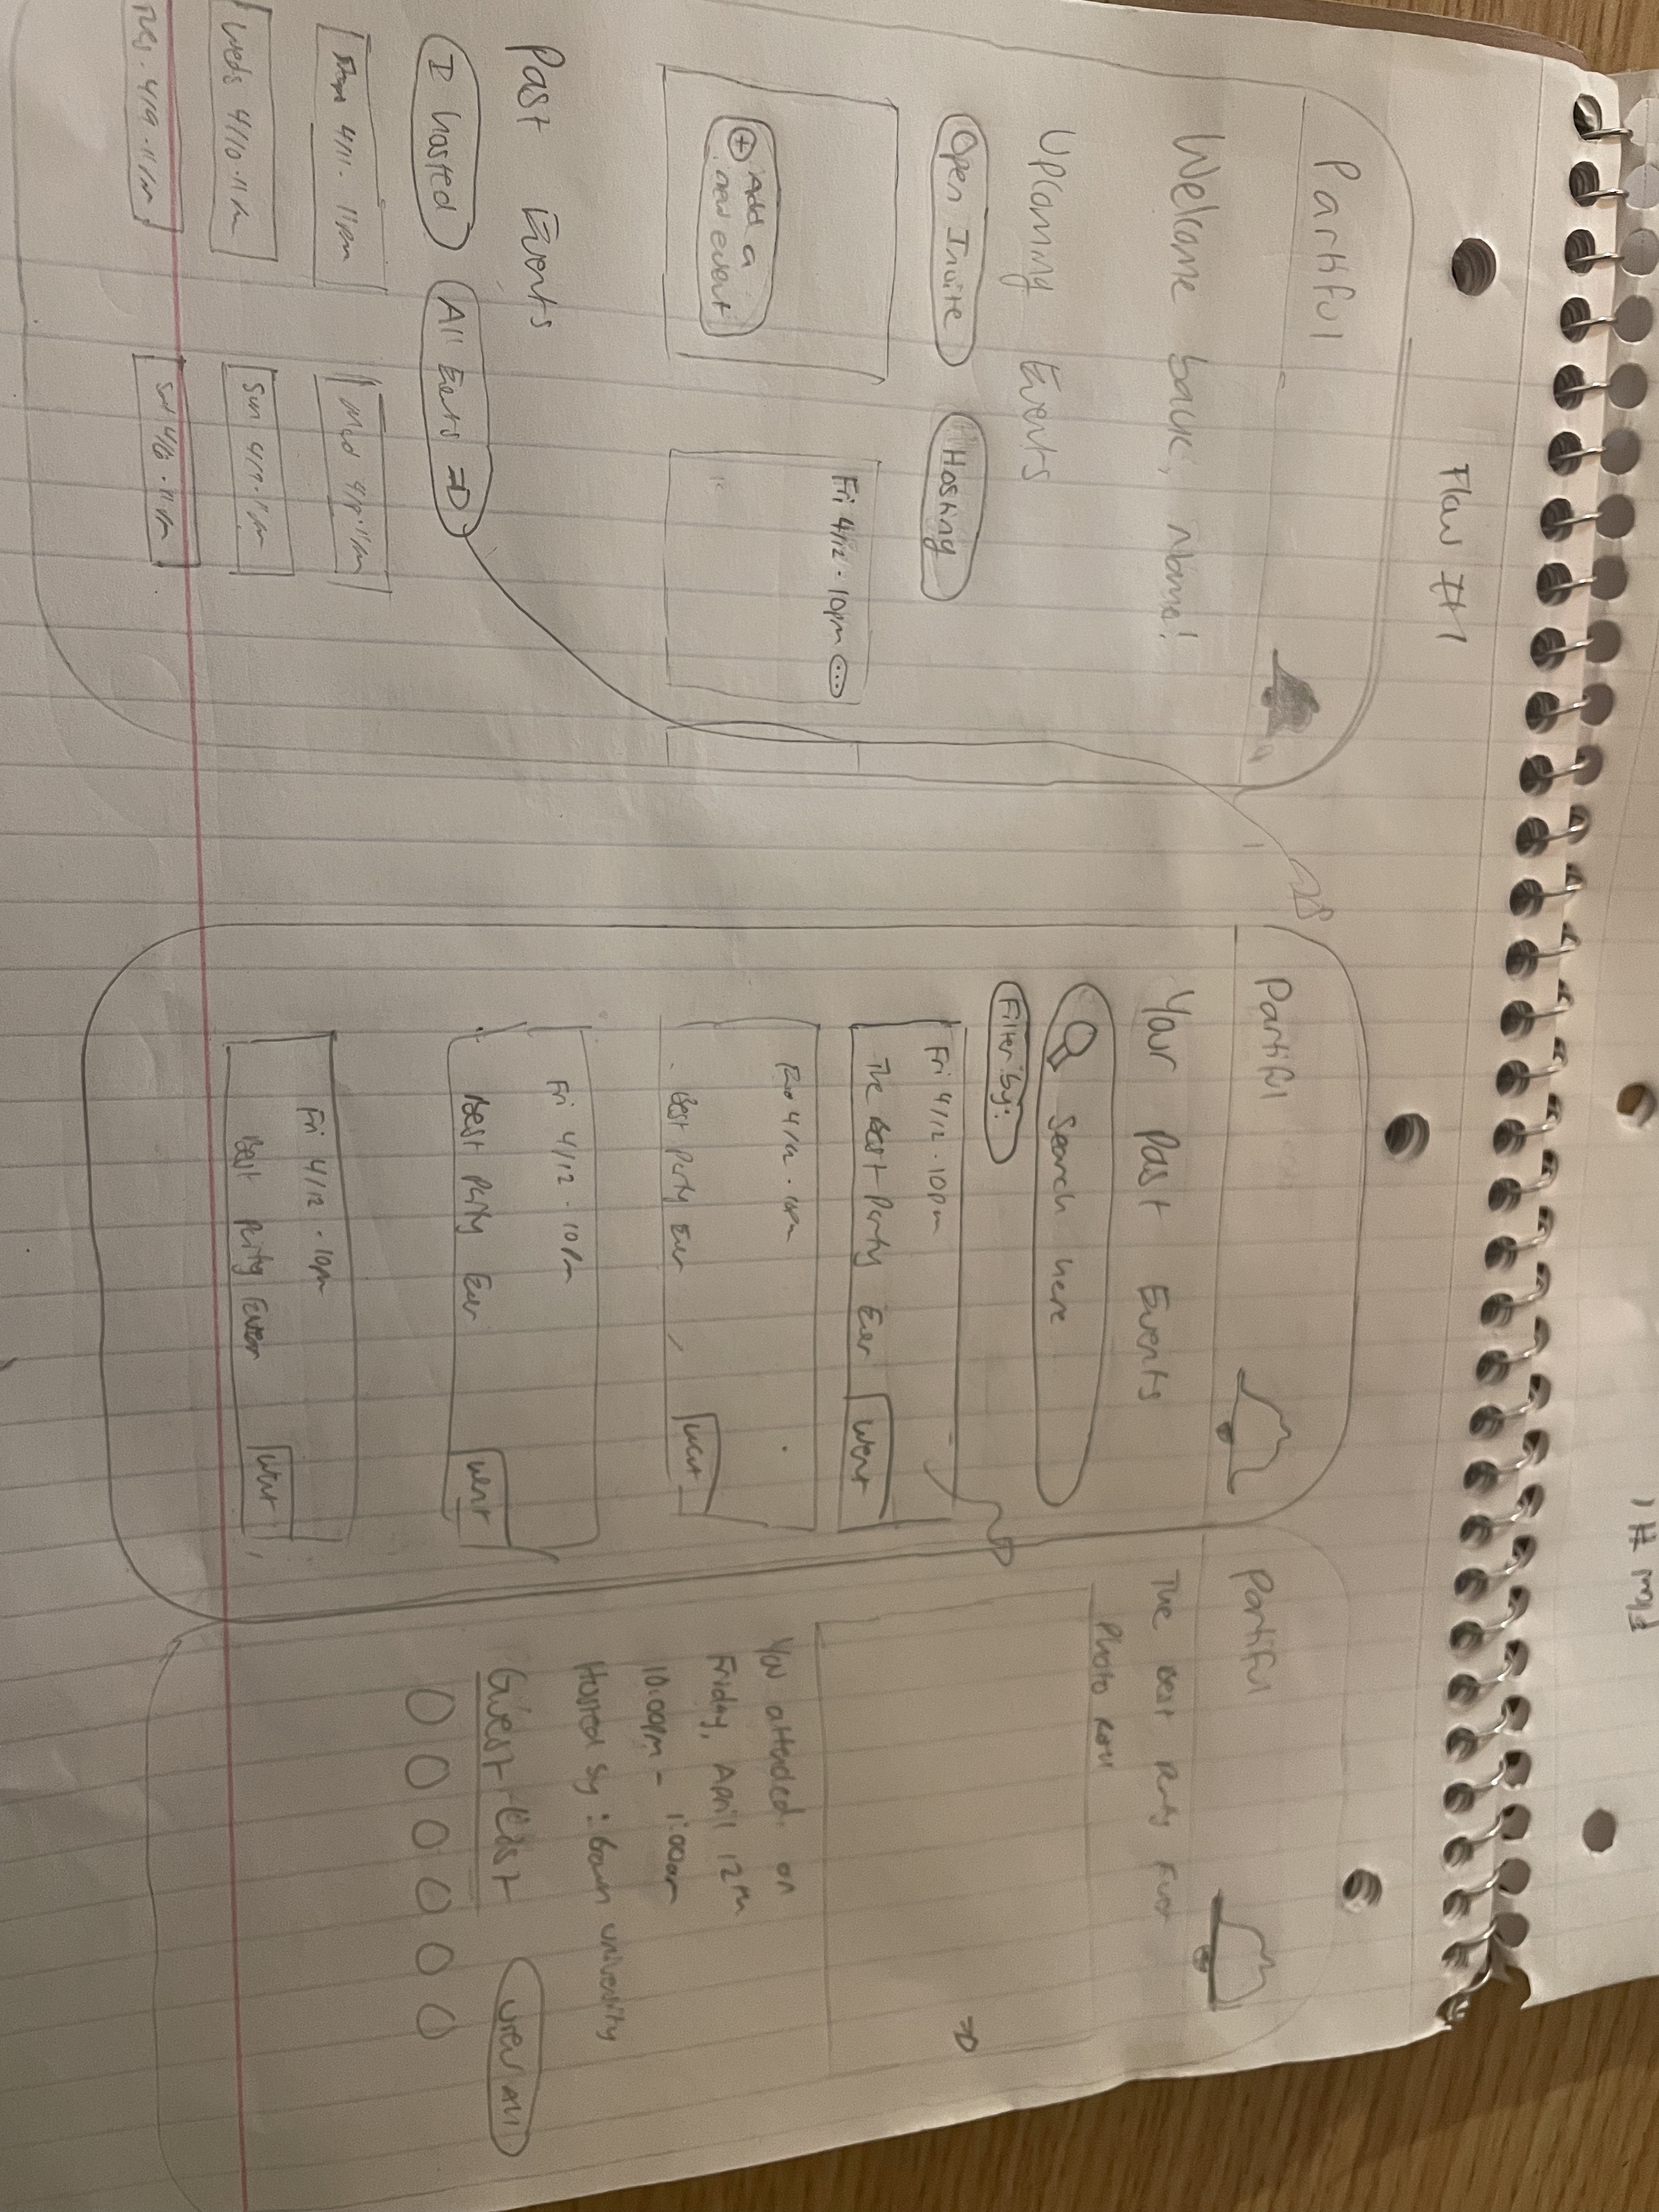 Flow #1
Flow #1
Partiful
Welcome back, Name!
Upcoming Events
Open Invite
Hosting
Add a
new event
Fri 4/12 · 10pm ...
Past Events
I hosted
All Events
4/11 · 11pm
4/8 · 11pm
Weds 4/10 · 11pm
Sun 4/7 · 11pm
Tues · 4/9 · 11pm
Sat 4/6 · 11pm
Partiful
Your Past Events
Search here
Filter by:
Fri 4/12 · 10pm
The Best Party Ever
Went
4/12 · 10pm
Best Party Ever
Went
Fri 4/12 · 10pm
Best Party Ever
Went
Fri 4/12 · 10pm
Best Party Ever
Went
Partiful
The Best Party Ever
Photo Roll
You attended on
Friday, April 12th
10:00pm - 1:00am
Hosted by: Brown University
Guest List
View All